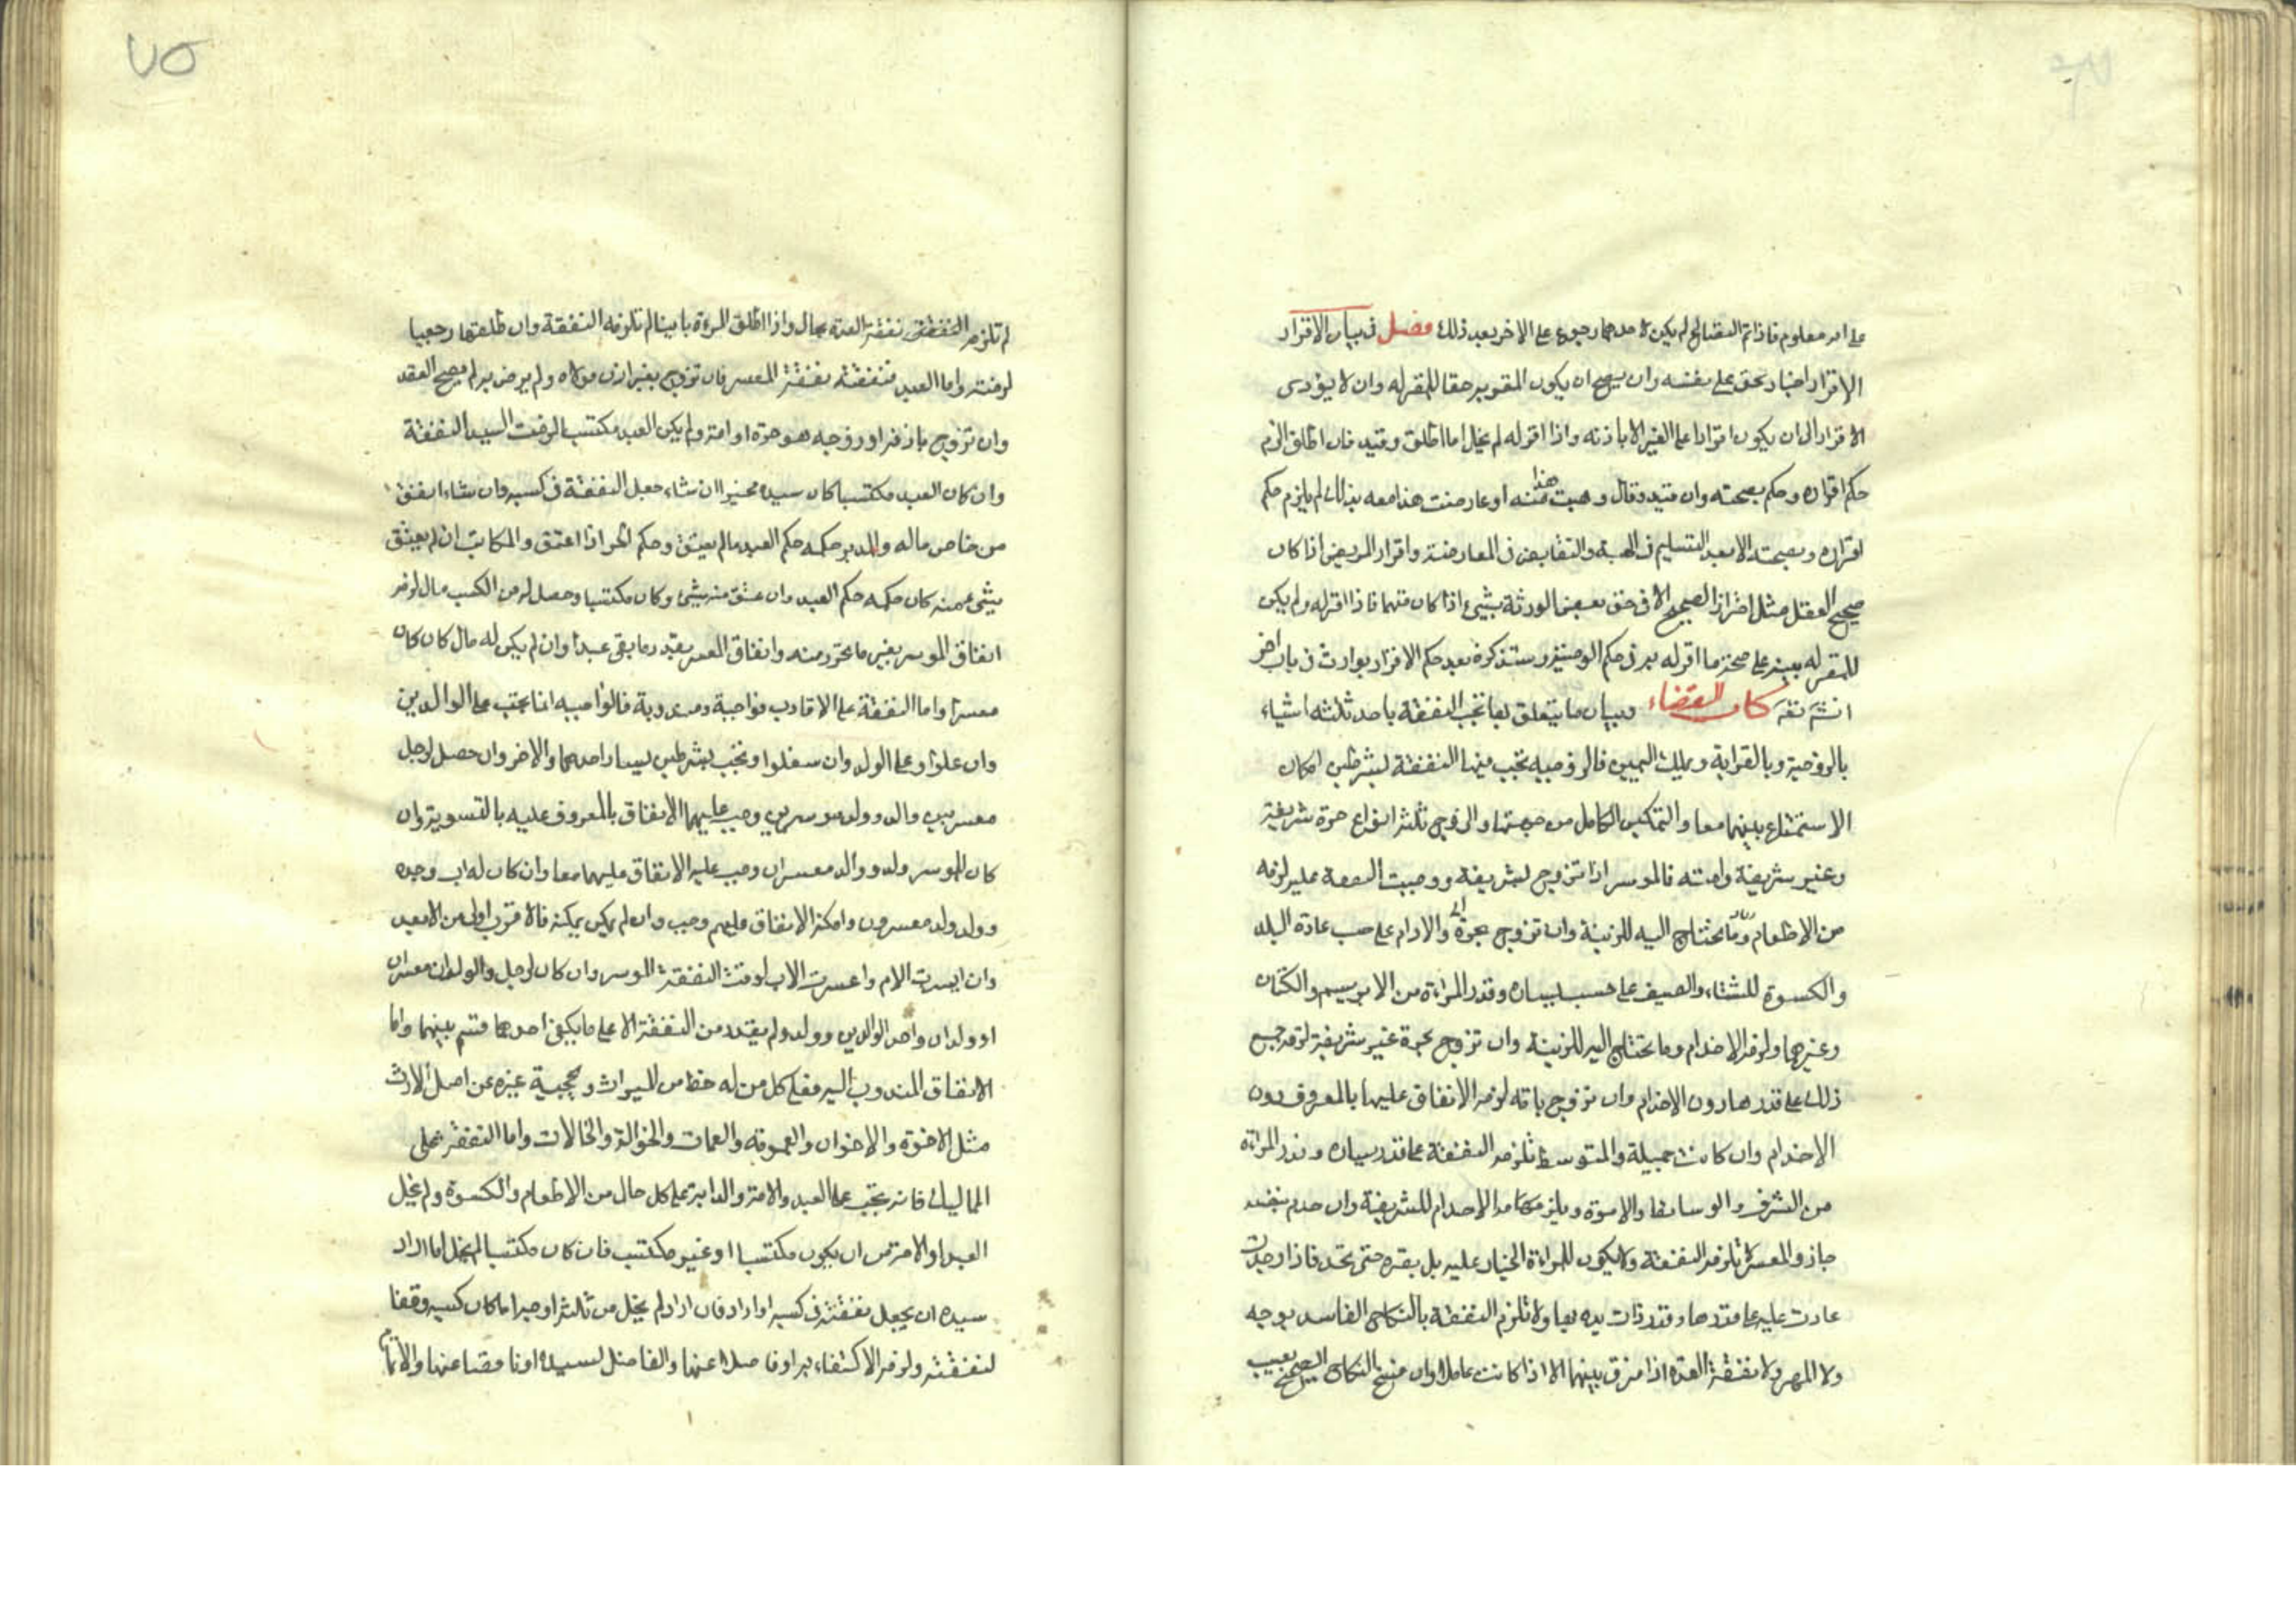 على امر معلوم فاذا تم الصلح لم يكن لاحدهما رجوع على الاخر بعد ذلك فصل في بيان الاقرار
الاقرار اخبار بحق على نفسه وان يصح ان يكون المقر به حقا للمقر له وان لا يؤدى
الاقرار الى ان يكون اقرارا على الغير الا باذنه واذا اقر له لم يخل اما اطلق وقيد فان اطلق الزم
حكم اقراره وحكم بصحته وان قيد وقال وهبت هذا منه او عارضت هذا معه بذلك لم يلزم حكم
اقراره وبصحته الا بعد التسليم في الهبة والتقابض في المعارضة واقرار المريض اذا كان
صحيح العقل مثل اقرار الصحيح الا في حق بعض الورثة بشيء اذا كان متهما فاذا اقر له ولم يكن
للمقر له بينة على صحة ما اقر له به في حكم الوصية وسنذكره بعد حكم الاقرار بوارث في باب اخر
انشم تعه كتاب النفقات وبيان ما يتعلق بها تجب النفقة باحد ثلثة اشياء
بالزوجية وبالقرابة وبملك اليمين فالزوجيه تجب فيها النفقة بشرطين امكان
الاستمتاع بينهما معا والتمكين الكامل من جهتها والزوج ثلثة انواع حرة شريفة
وغير شريفة وامته فالموسر اذا تزوج بشريفة ووجبت النفقة عليه لزمه
من الاطعام وما تحتاج اليه للزينة وان تزوج بحرة والادام على حسب عادة البلد
والكسوة للشتاء والصيف على حسب يساره وقدر المراة من الابريسم والكتان
وغيرهما ولزمه الاخدام وما تحتاج اليه للزينة وان تزوج بحرة غير شريفة لزمه جميع
ذلك على قدرها دون الاخدام وان تزوج بامة لزمه الانفاق عليها بالمعروف دون
الاخدام وان كانت جميلة والمتوسط تلزمه النفقة على قدر يساره وقدر المراة
من الشرف والوساطة والاسوة ويلزمه الاخدام للشريفة وان خدم بنفسه
جاز والمعسر تلزمه النفقة ولا يكون للمراة الخيار عليه بل يصبر حتى تجد فاذا وجدت
عادت عليه على قدرها وقدر ذات يده بها ولا تلزم النفقة بالنكاح الفاسد بوجه
ولا المهر ولا نفقة العدة اذا فرق بينهما الا اذا كانت حاملا وان فسخ النكاح الصحيح بعيب
لم تلزمه النفقة نفقة العدة بحال واذا طلق المرءة باينا لم تلزمه النفقة وان طلقها رجعيا
لزمته واما العبد فنفقته نفقة المعسر فان تزوج بغير اذن مولاه ولم يرض به لم يصح العقد
وان تزوج باذنه او زوجه هو حرة او امة ولم يكن العبد مكتسبا لزمت السيد النفقة
وان كان العبد مكتسبا كان سيده مخيرا ان شاء جعل النفقة في كسبه وان شاء انفق
من خاص ماله والمدبر حكمه حكم العبد ما لم يعتق وحكم الحر اذا اعتق والمكاتب ان لم يعتق
شيء منه كان حكمه حكم العبد وان عتق منه شيء وكان مكتسبا وحصل له من الكسب مال لزمه
انفاق الموسر بغير ما تحرر منه وانفاق المعسر بقدر ما بقي عبدا وان لم يكن له مال كان كان
معسرا واما النفقة على الاقارب فواجبة ومندوبة فالواجبه انما تجب على الوالدين
وان علوا وعلى الولد وان سفلوا وتجب بشرطين يسار احدهما والاخر وان حصل لرجل
معسر بين والد وولد موسرين وجب عليهما الانفاق بالمعروف عليه بالتسوية وان
كان للموسر ولد ووالد معسران وجب عليه الانفاق عليهما معا وان كان له اب وجده
وولد ولد معسرون وامكنه الانفاق عليهم وجب وان لم يكن يمكنه فالاقرب اولى من الابعد
وان ايسرت الام واعسرت الاب لزمت النفقة الموسر وان كان لرجل والولدان معسران
او ولدان واحد الوالدين وولد ولم يقدر من النفقة الا على ما يكفي احدهما قسم بينهما واما
الانفاق المندوب اليه فعلى كل من له حظ من الميراث ويحجبه غيره عن اصل الارث
مثل الاخوة والاخوان والعمومة والعمات والخوالة والخالات واما النفقة على
المماليك فانه تجب على العبد والامة والدابة على كل حال من الاطعام والكسوة ولم يخل
العبد او الامة من ان يكون مكتسبا او غير مكتسب فان كان مكتسبا لم يخل اما اراد
سيده ان يجعل نفقته في كسبه او اراد فان اراد لم يخل من ثلثة اوجه اما كان كسبه وفقا
لنفقته ولزمه الاكتفاء به او فاضلا عنها والفاضل لسيده او ناقصا عنها والاتمام